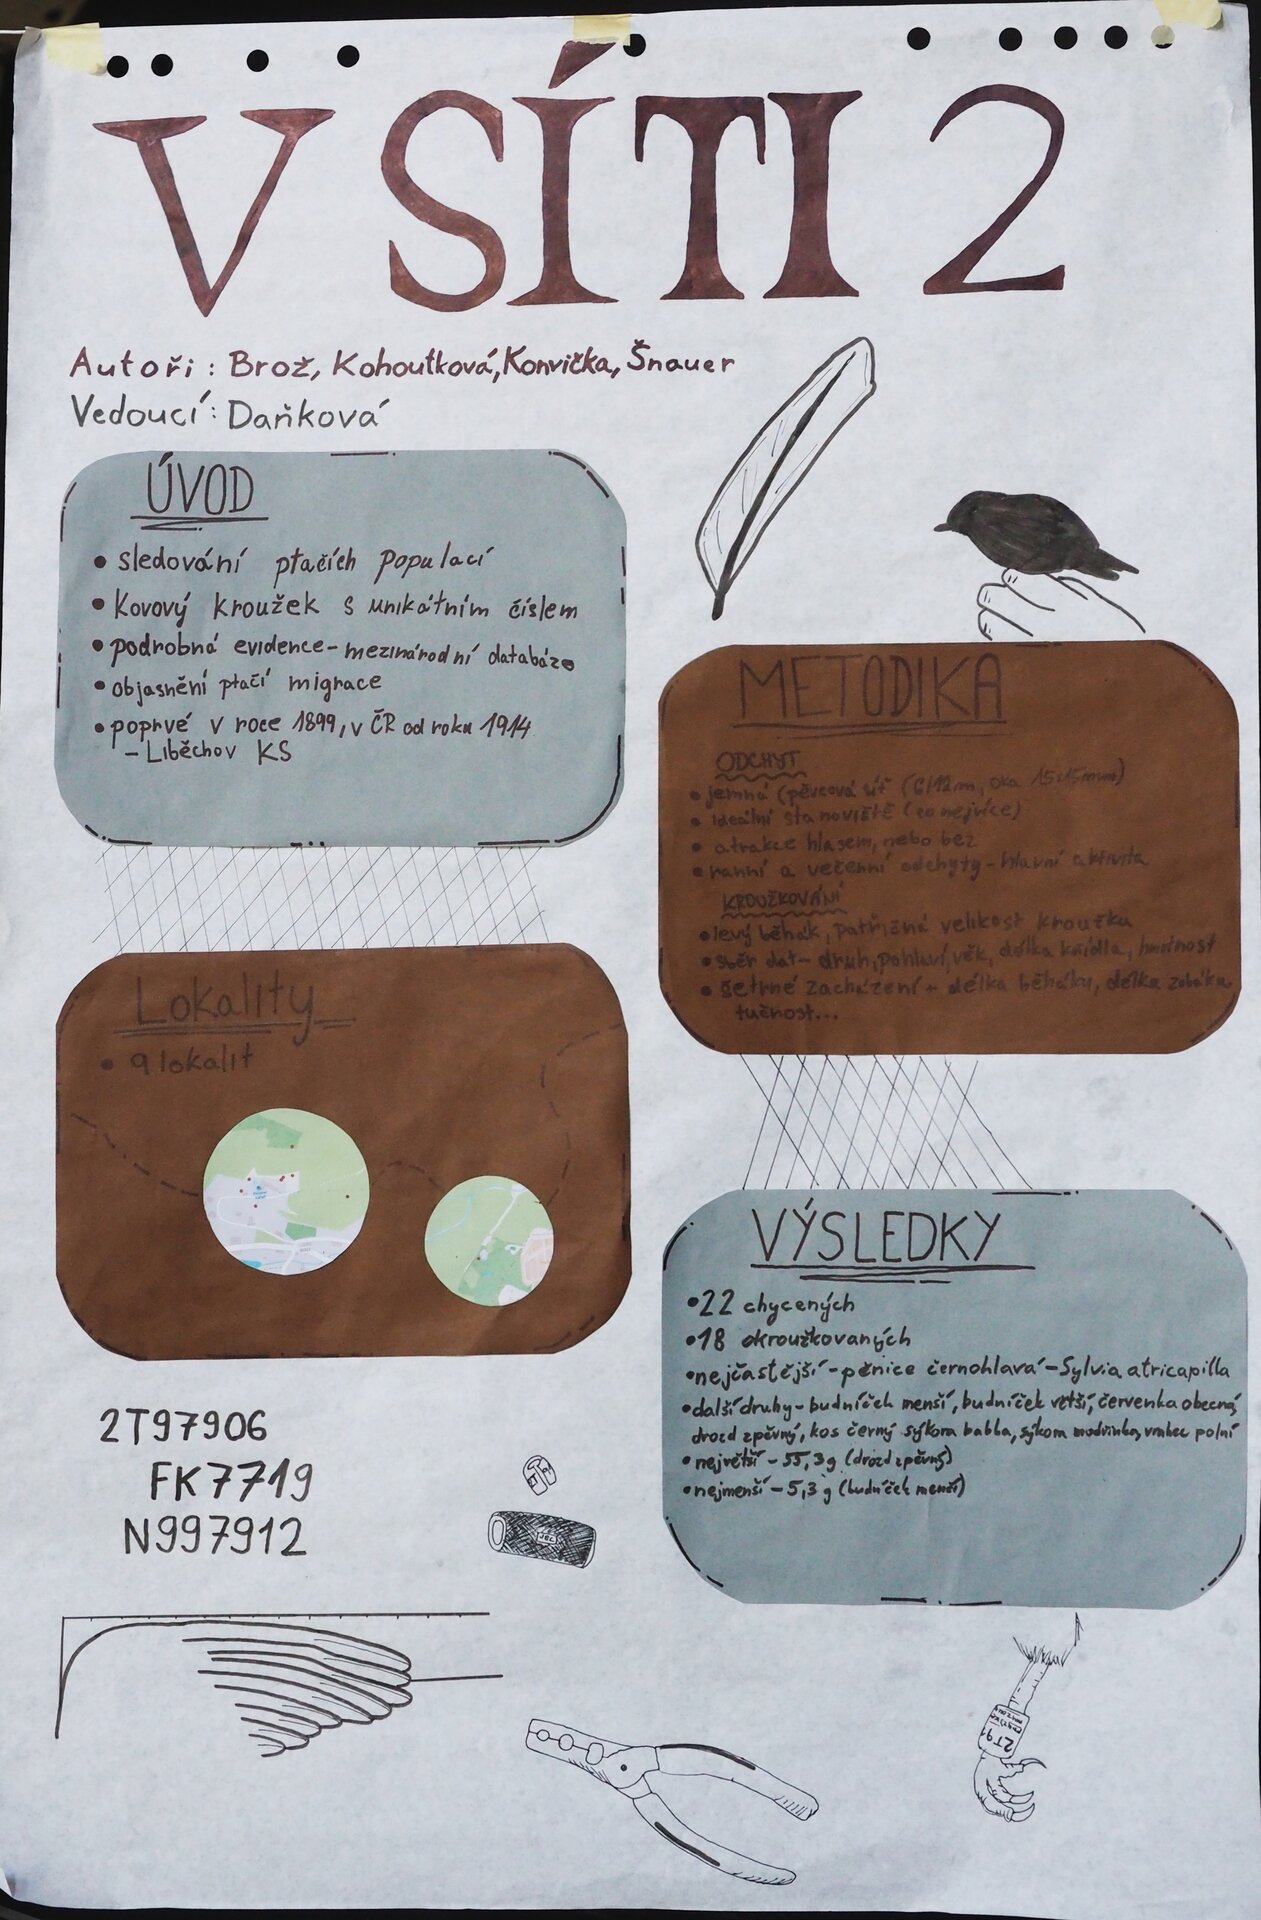 V SÍTI 2
Autoři: Brož, Kohoutková, Konvička, Šnauer
Vedoucí: Daňková
ÚVOD
• sledování ptačích populací
• Kovový kroužek s unikátním číslem
• podrobná evidence - mezinárodní databáze
• objasnění ptačí migrace
• poprvé v roce 1899, v ČR od roku 1914
- Liběchov KS
METODIKA
ODCHYT
• jemná (pěvcová síť (6/12m, oka 15x15mm)
• ideální stanoviště (co nejvíce)
• atrakce hlasem, nebo bez
• ranní a večerní odchyty - hlavní aktivita
KROUŽKOVÁNÍ
• levý běhák, patřičná velikost kroužku
• sběr dat - druh, pohlaví, věk, délka křídla, hmotnost
• šetrné zacházení + délka běháku, délka zobáku
tučnost...
Lokality
• 9 lokalit
VÝSLEDKY
• 22 chycených
• 18 okroužkovaných
• nejčastější - pěnice černohlavá - Sylvia atricapilla
• další druhy - budníček menší, budníček větší, červenka obecná,
drozd zpěvný, kos černý sýkora babka, sýkora modřinka, vrabec polní
• největší - 55,3g (drozd zpěvný)
• nejmenší - 5,3 g (budníček menší)
2T97906
FK7719
N997912
JBL
2T9